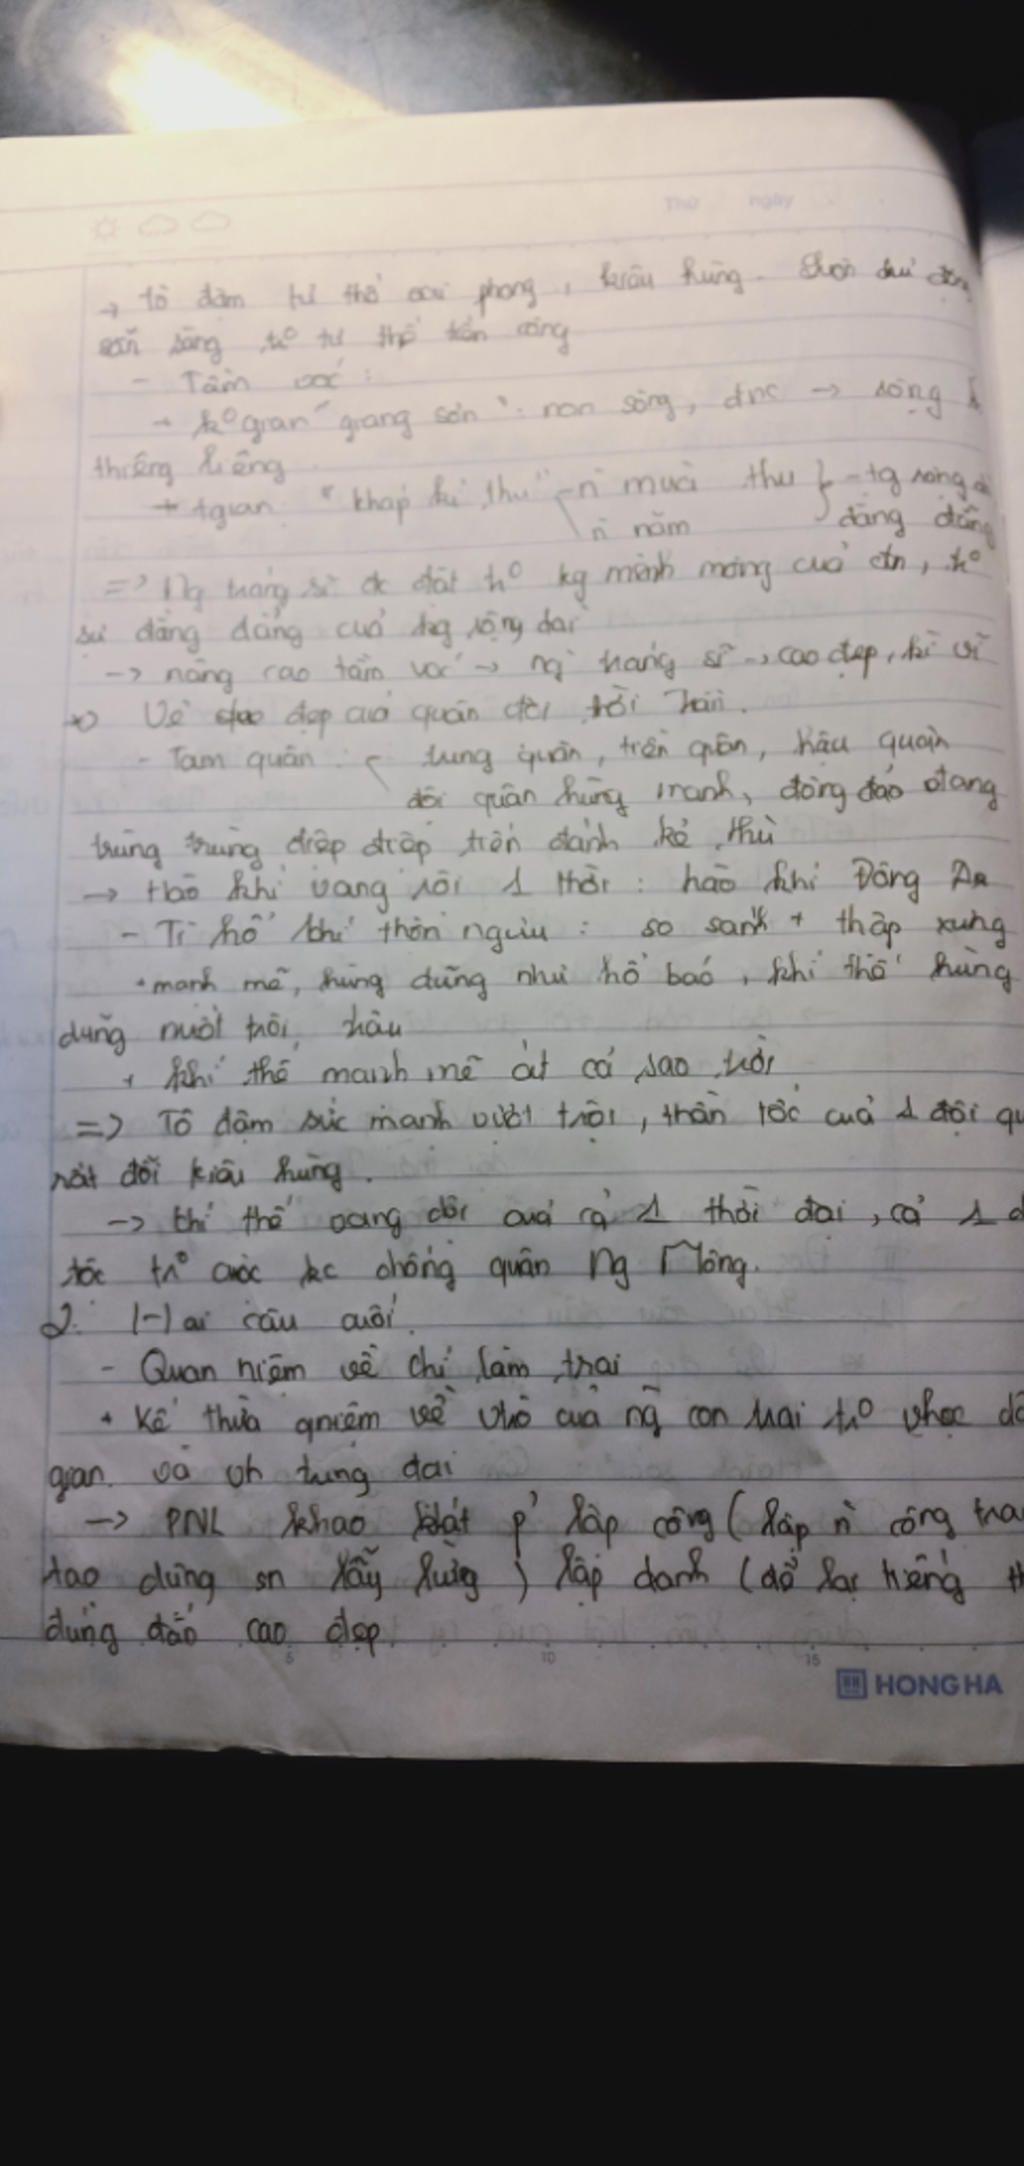 Thứ ngày
→ tô đậm tư thế oai phong, kiêu hùng. luôn chủ động
sẵn sàng tr⁰ tư thế tấn công
- Tầm vóc :
+ k⁰ gian "giang sơn": non sông, đnc → rộng
thiêng liêng
+ tgian "kháp kỉ thu" - n mùa thu } - tg rộng
n năm đằng đẵng
=> Ng tráng sĩ đc đặt tr⁰ kg mênh mông của đn, tr⁰
sự đằng đẵng của tg rộng dài
-> nâng cao tầm vóc -> ng tráng sĩ -> cao đẹp, kì vĩ
Vẻ đẹp của quân đội thời Trần.
- Tam quân : trung quân, tiền quân, hậu quân
đội quân hùng mạnh, đông đảo đang
trùng trùng điệp điệp tiến đánh kẻ thù
-> Hào khí vang dội 1 thời : hào khí Đông A
- Tì hổ khí thôn ngưu : so sánh + thập xưng
+ mạnh mẽ, hùng dũng như hổ báo, khí thế hùng
dũng nuốt trôi trâu
+ khí thế mạnh mẽ át cả sao trời
=> Tô đậm sức mạnh vượt trội, thần tốc của 1 đội qu
rất đỗi kiêu hùng.
-> khí thế vang dội của cả 1 thời đại, cả 1 d
tộc tr⁰ cuộc kc chống quân Ng Mông.
2. Hai câu cuối.
- Quan niệm về chí làm trai
+ Kế thừa qniệm về của ng con trai tr⁰ vhọc dâ
gian và vh trung đại
-> PNL khao khát p' lập công (lập n công tra
tạo dựng sn lẫy lừng) lập danh (để lại tiếng th
đúng đắn cao đẹp
5 10 15
HONG HA